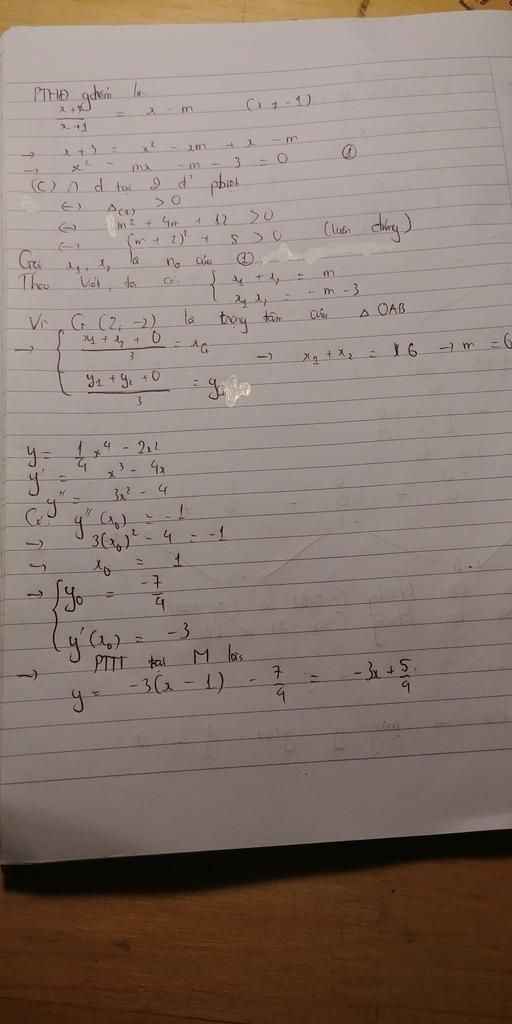 PTHĐ gđiểm là
x+3 / x+1 = x - m (x ≠ -1)
→ x + 3 = x² - xm + x - m
→ x² - mx - m - 3 = 0 ①
(C) ∩ d tại 2 đ' pbiệt
⇔ Δ(1) > 0
⇔ m² + 4m + 12 > 0
⇔ (m + 2)² + 8 > 0 (luôn đúng)
Gọi x₁, x₂ là no của ①
Theo Viét, ta có: { x₁ + x₂ = m
x₁.x₂ = -m-3
Vì G(2, -2) là trọng tâm của Δ OAB
→ { x₁ + x₂ + 0 / 3 = xG → x₁ + x₂ = 6 → m = 6
y₁ + y₂ + 0 / 3 = y
y = 1/4 x⁴ - 2x²
y' = x³ - 4x
y'' = 3x² - 4
Có: y''(x₀) = -1
→ 3(x₀)² - 4 = -1
→ x₀ = 1
→ { y₀ = -7/4
y'(x₀) = -3
→ PTTT tại M là:
y = -3(x - 1) - 7/4 = -3x + 5/4